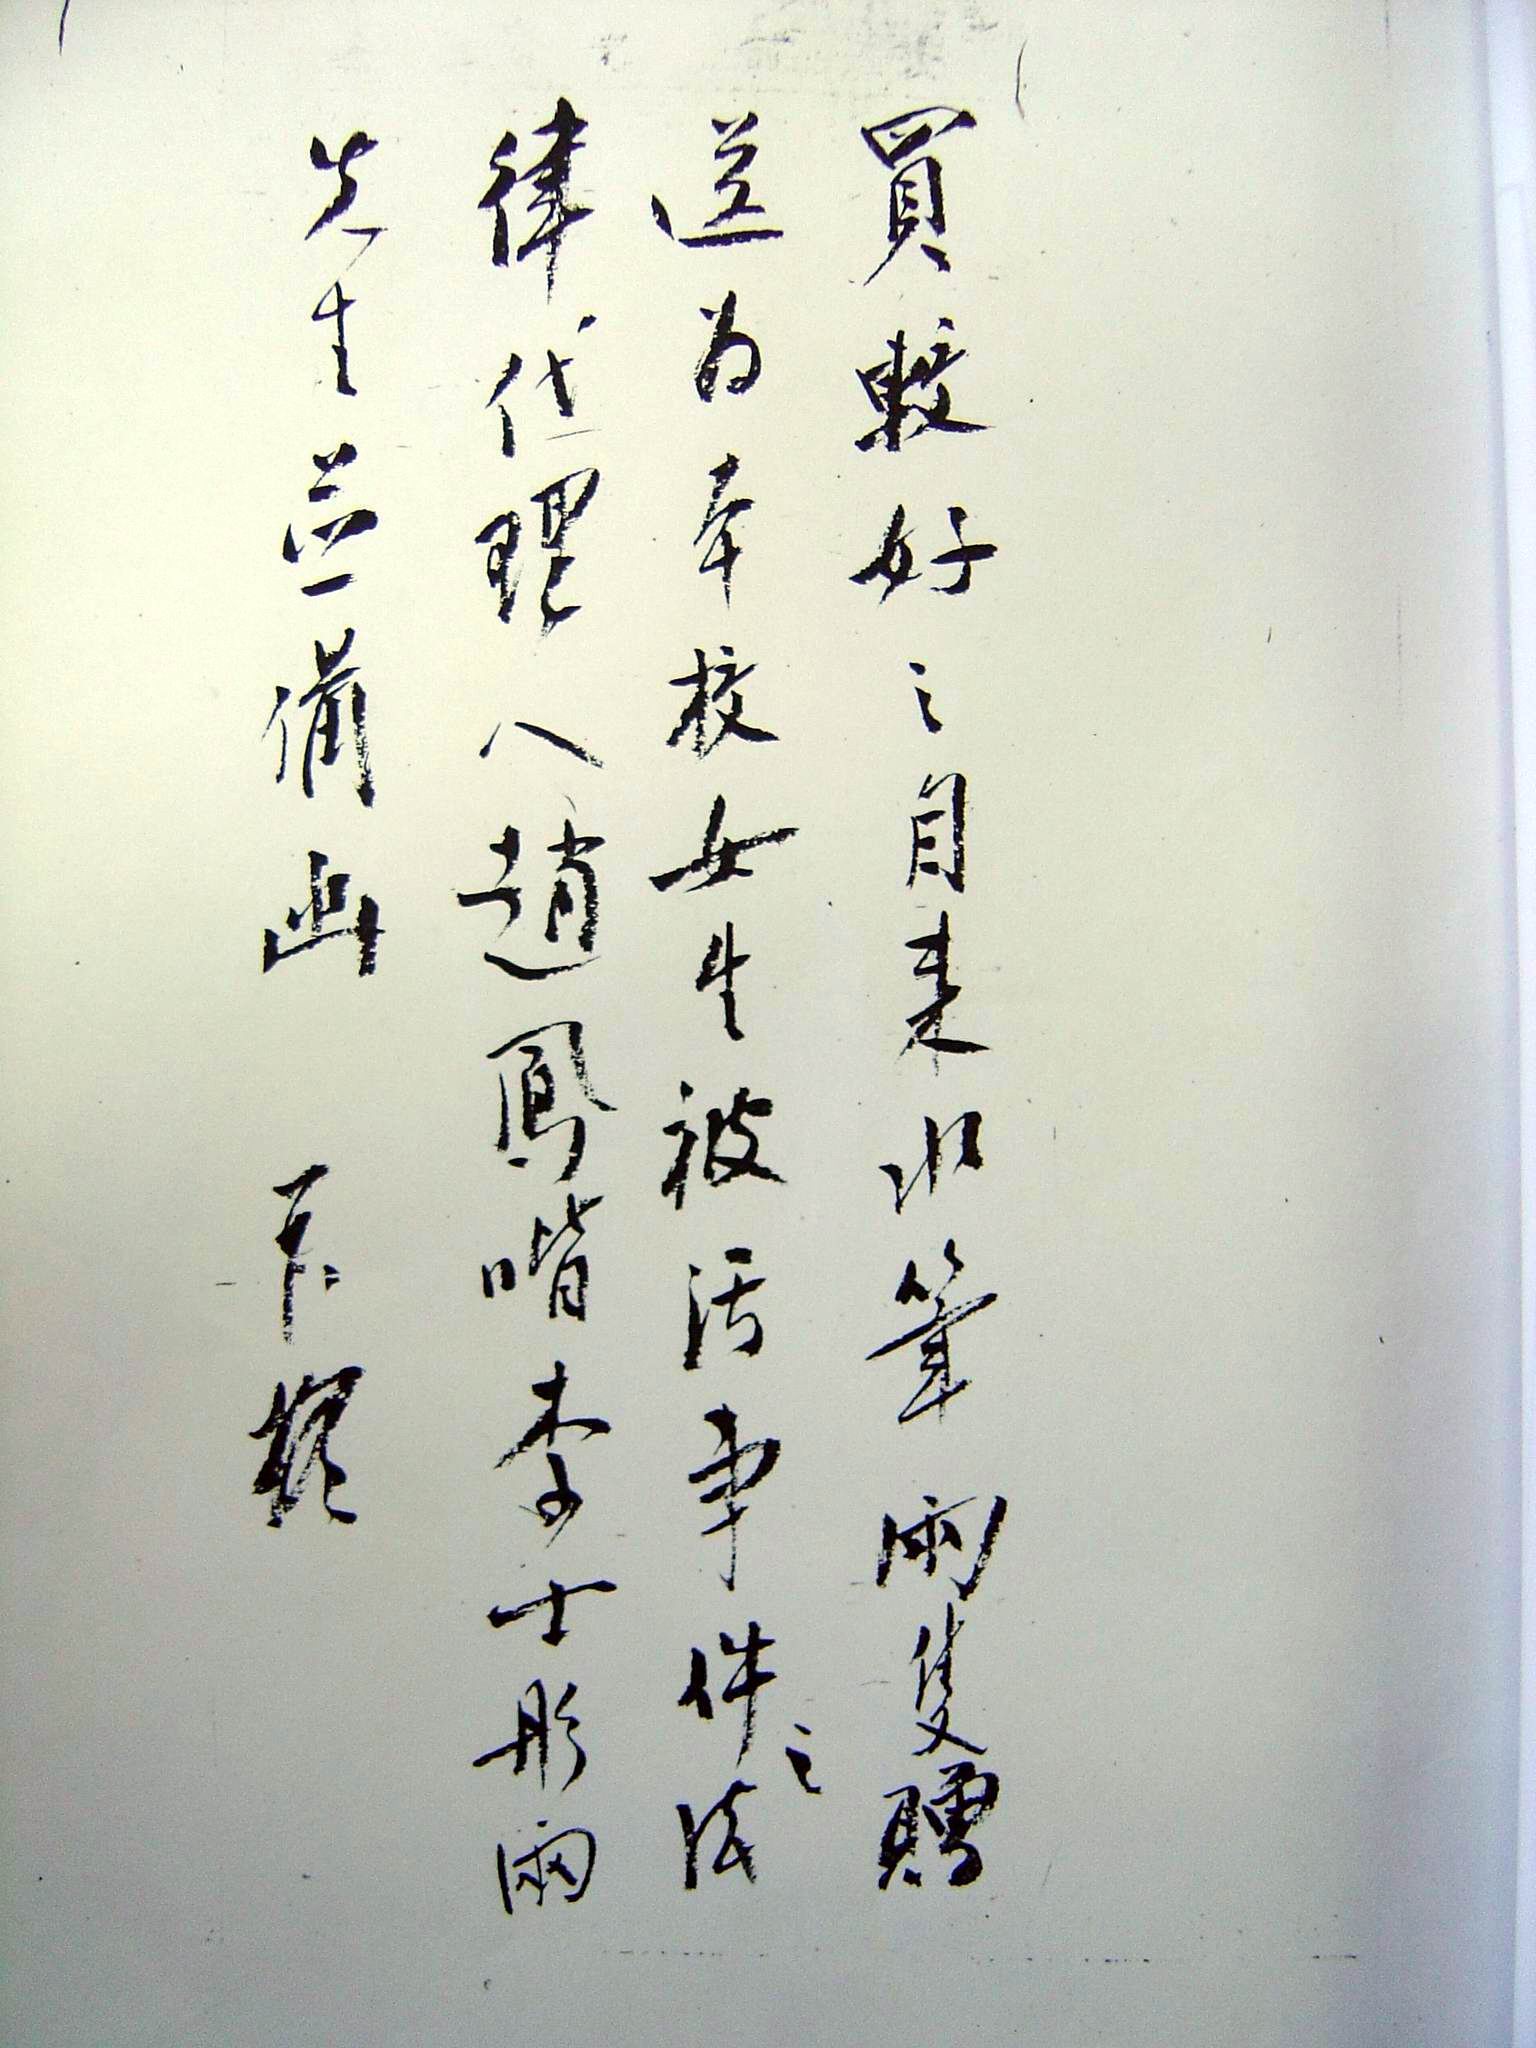 買較好之自来水筆兩隻贈
送为本校女生被污事件之法
律代理人趙鳳喈李士彤兩
先生並備函